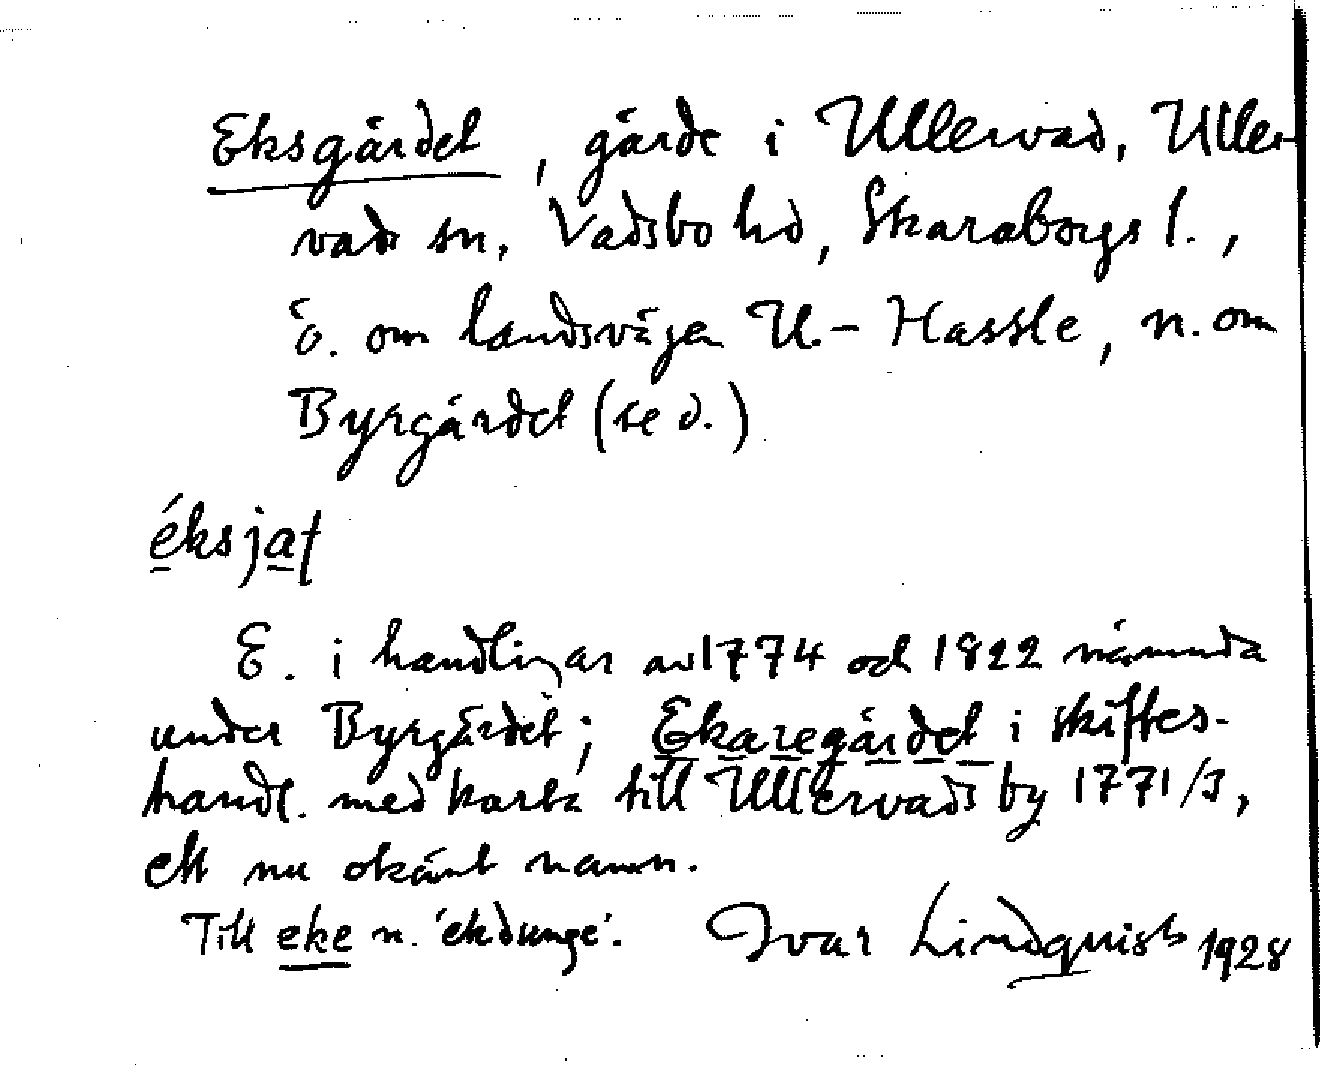 Eksgärdet, gärde i Ullervad, Uller-
vads sn, Vadsbo hd, Skaraborgs l.,
ö. om landsvägen U.- Hassle, n. om
Byrgärdet (se d.)
éksjat
E. i handlingar av 1774 och 1822 nämnda
under Byrgärdet; Ekaregärdet i skiftes-
handl. med karta till Ullervads by 1771/3,
ett nu okänt namn.
Till eke n. 'ekdunge'. Ivar Lindquist 1928